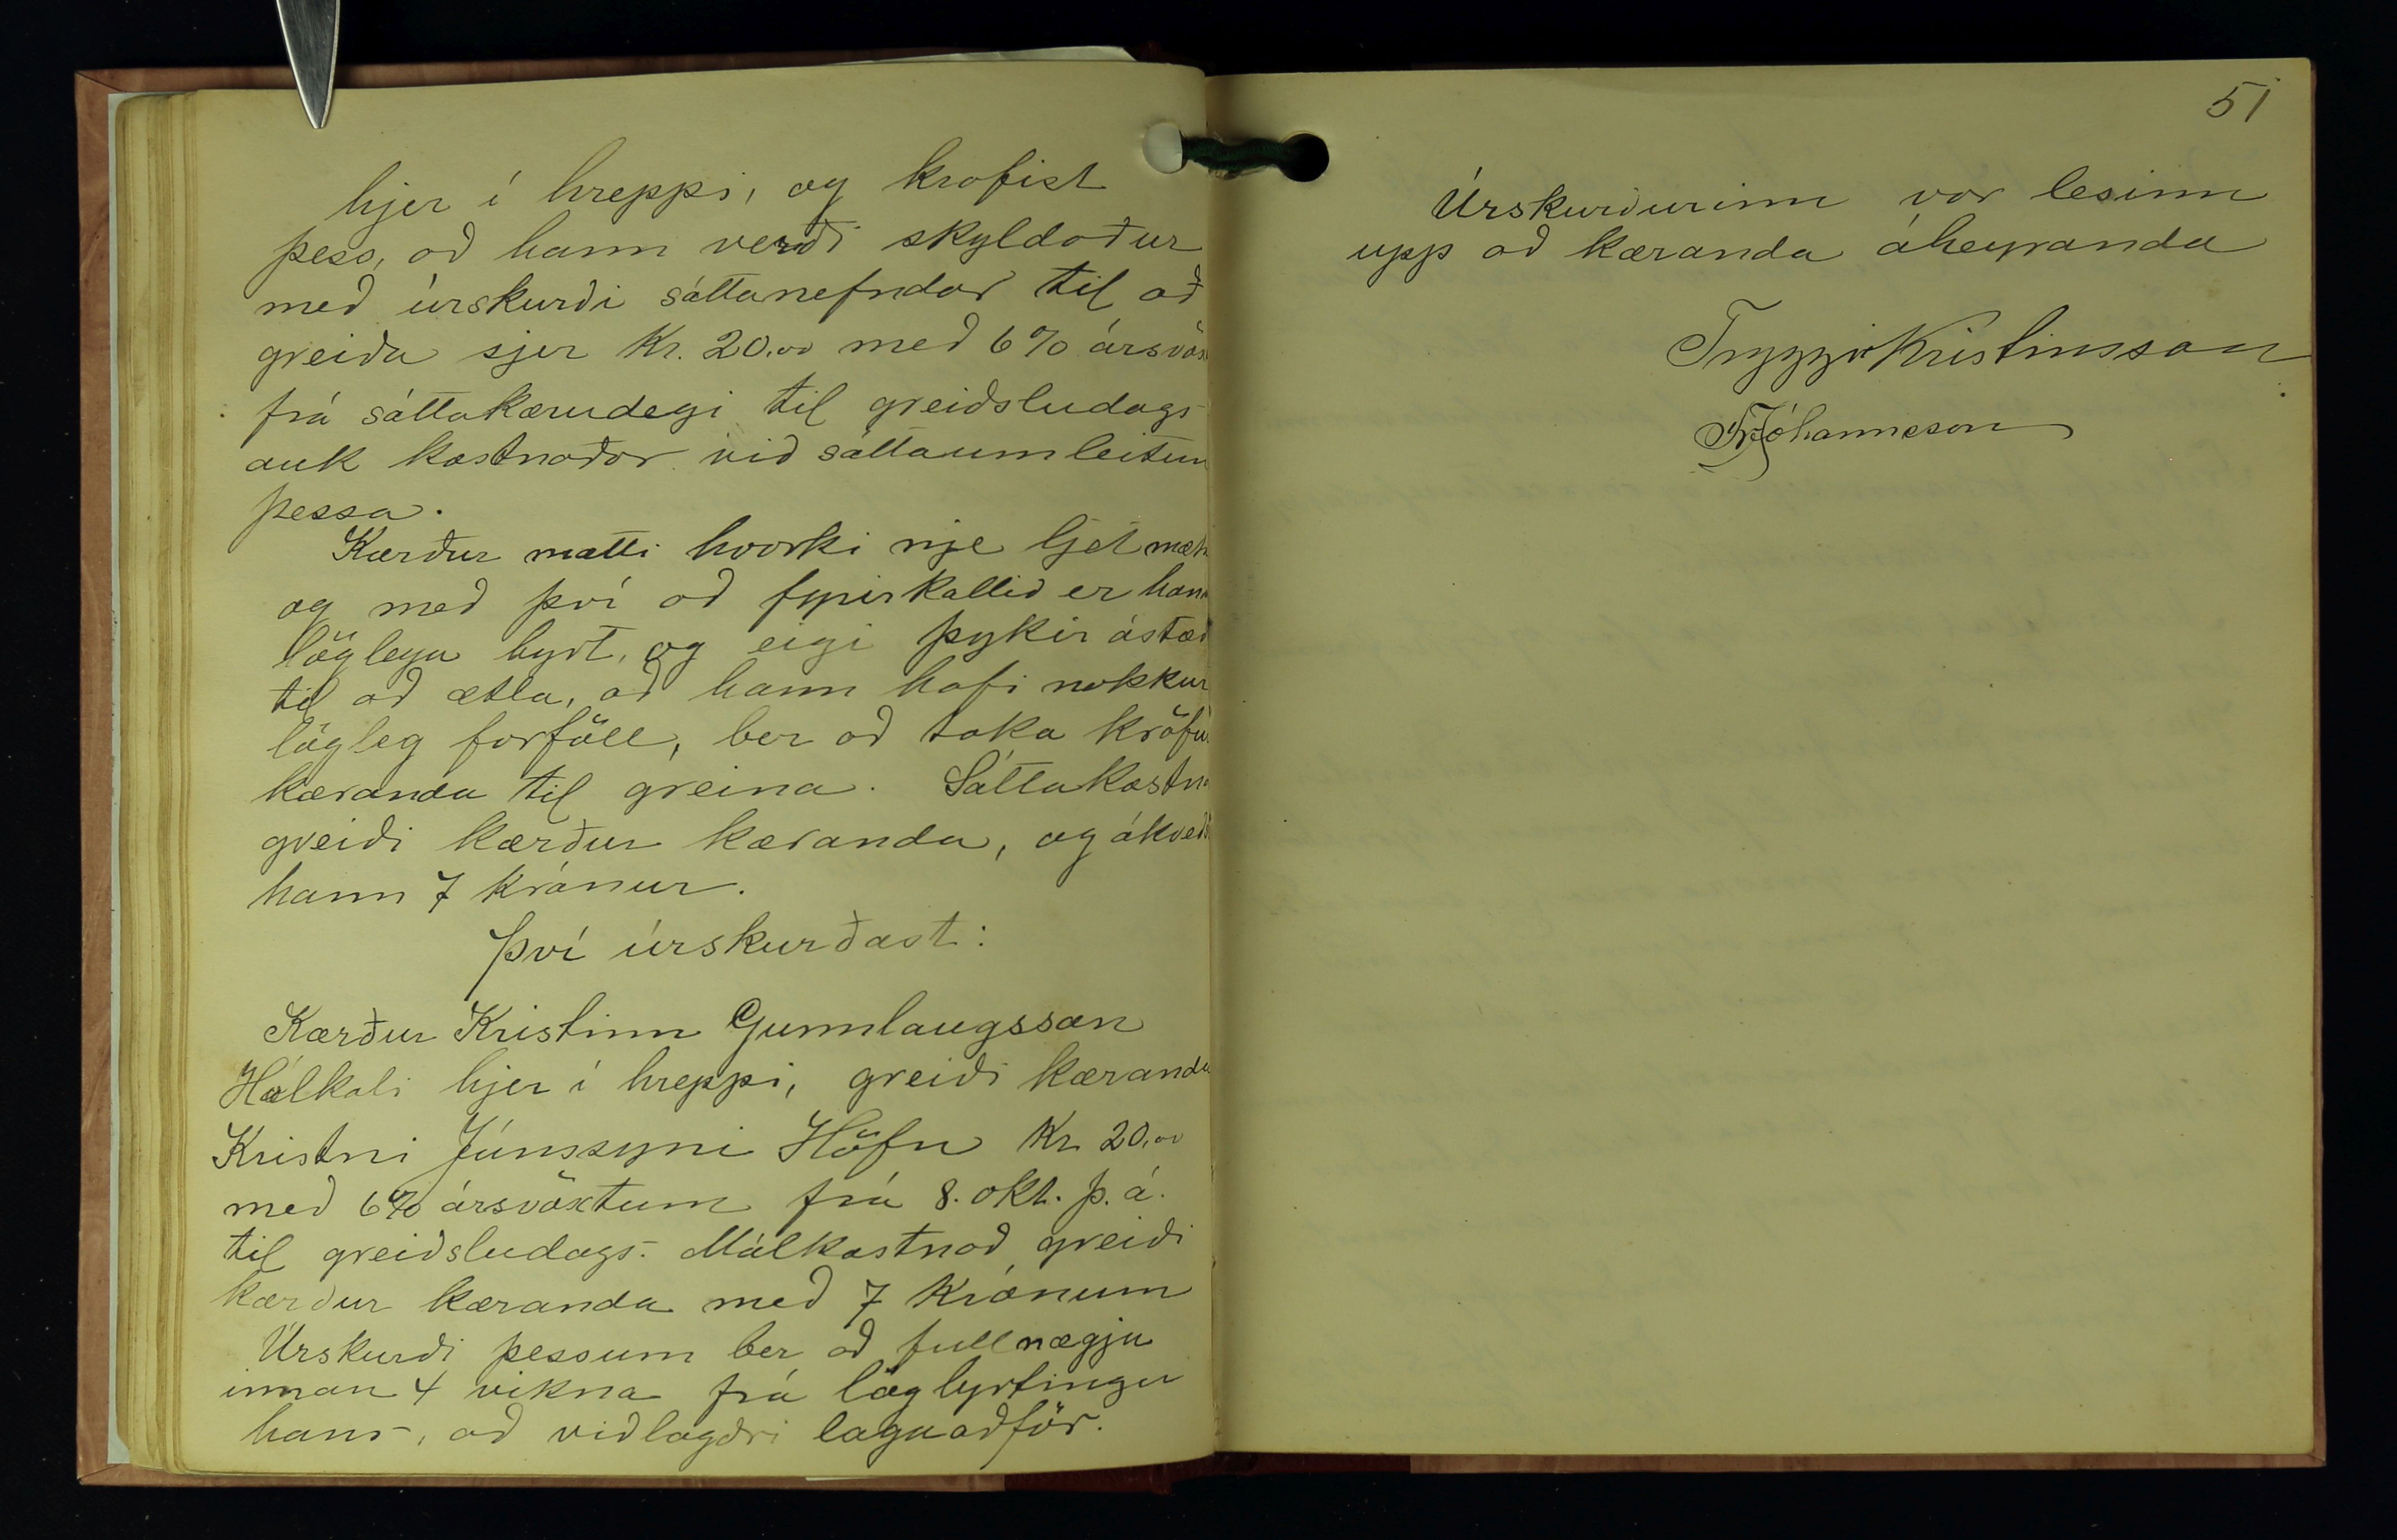 hjer í hreppi, og krafist
þess, að hann verði skyldaður
með úrskurði sáttanefndar til að
greiða sjer Kr. 20.00 með 6% ársvöx
frá sáttakærudegi til greiðsludags
auk kostnaðar við sáttaumleitun
þessa.
Kærður mætti hvorki nje ljet mæta
og með því að fyrirkallið er hon
löglega byrt, og eigi þykir ástæð
til að ætla, að hann hafi nokkur
lögleg forföll, ber að taka kröfu
kæranda til greina. Sáttakostn
greiði kærður kæranda, og ákveð
hann 7 krónur.
Því úrskurðast:
Kærður Kristinn Gunnlaugsson
Hálkoti hjer í hreppi, greiði kæranda
Kristni Jónssyni Höfn Kr. 20.00
með 6% ársvöxtum frá 8. okt. þ. á.
til greiðsludags. Málkostnað greiði
kærður kæranda með 7 krónum
Úrskurði þessum ber að fullnægja
innan 4 vikna frá löglyrtingu
hans, að viðlagðri lagaaðför.
51
Úrskurðurinn var lesinn
upp að kæranda áheyranda
Tryggvi Kristinsson
Jóhannsson